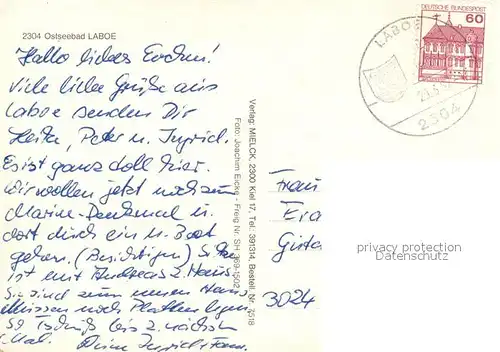 2304 Ostseebad LABOE
Hallo liebes Evchen!
Viele liebe Grüße aus
Laboe senden Dir
Heike, Peter u. Ingrid.
Es ist ganz doll hier.
Wir wollen jetzt noch zum
Marine-Denkmal u.
dort durch ein U. Boot
gehen. (Besichtigen)
ist mit Andreas z. Haus
Sie sind zum neuen Haus
Müssen noch Platten legen.
bis z. nächsten
Mal. Deine Ingrid + Fam.
Verlag: MIELCK, 2300 Kiel 17, Tel: 391314, Bestell. Nr. 7518
Foto: Joachim Eicke - Freig Nr. SH
DEUTSCHE BUNDESPOST
60
LABOE
2304
Frau
Eva
3024
privacy protection
Datenschutz